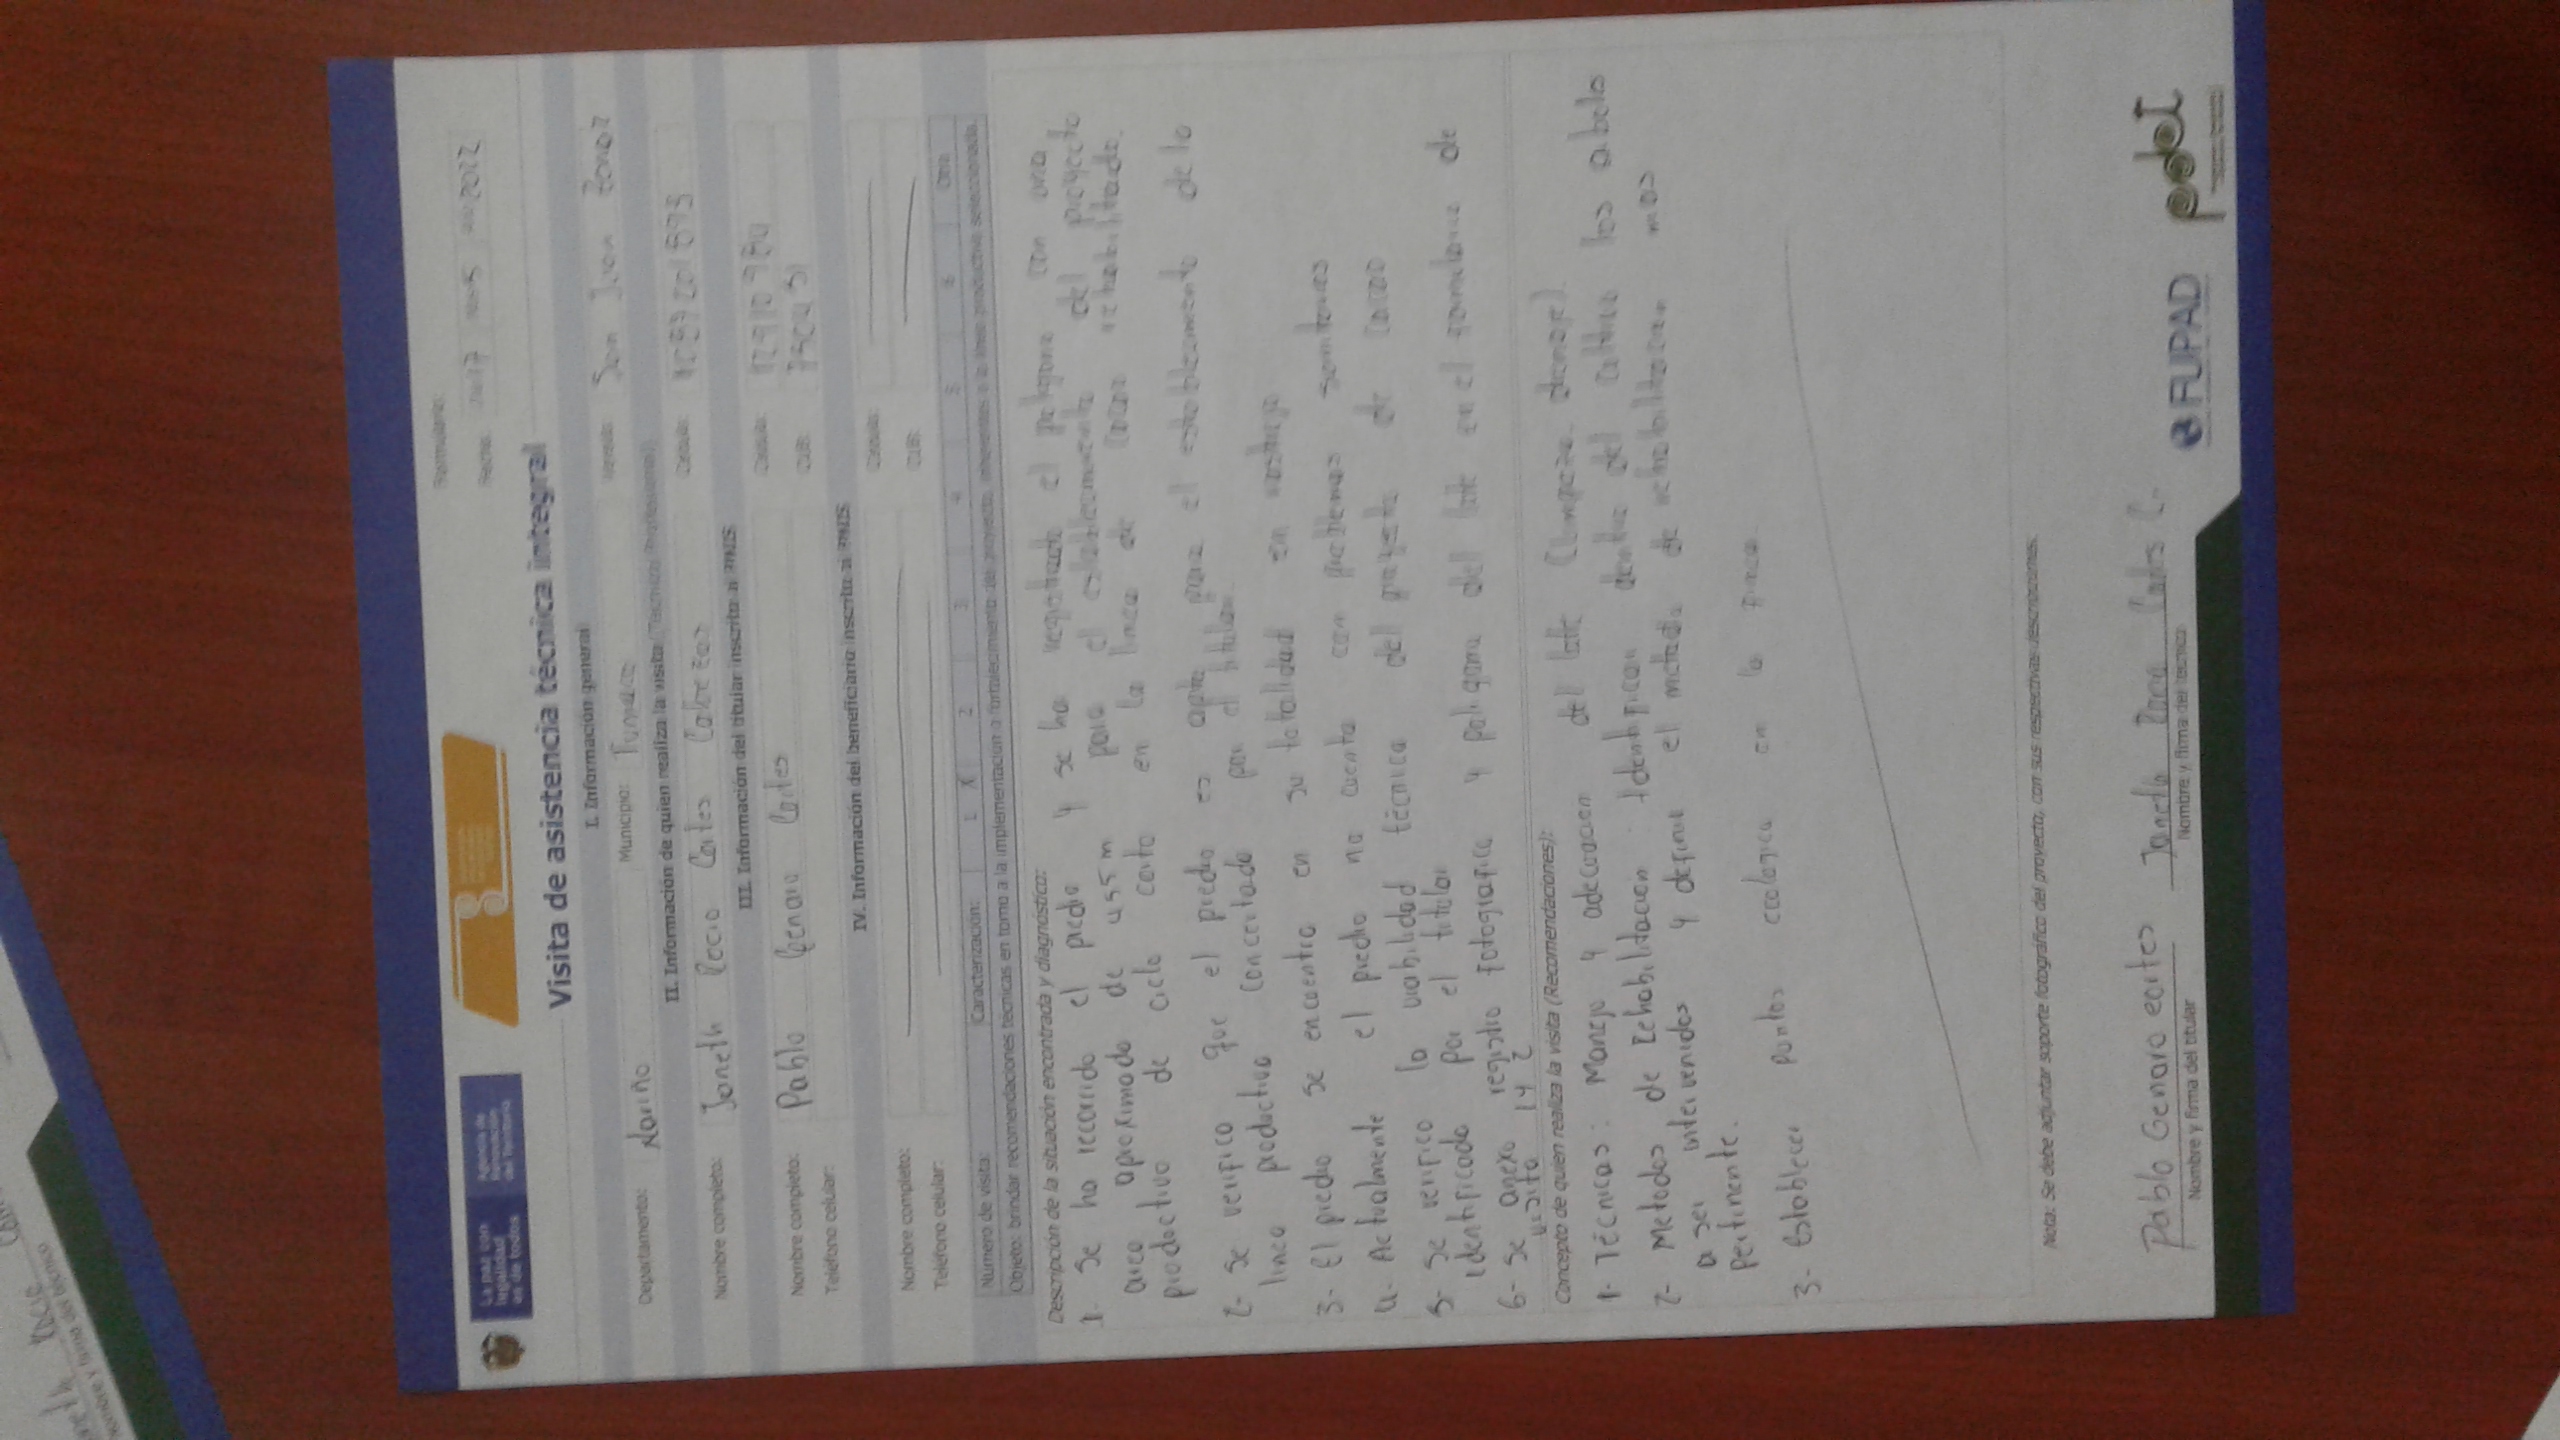 La paz con
legalidad
es de todos
Agencia de
Renovación
del Territorio
Formulario:
Fecha: 17 5 2022
Visita de asistencia técnica integral
I. Información general
Departamento: Nariño Municipio: Tumaco Vereda: San Juan
II. Información de quien realiza la visita (Técnico/Profesional)
Nombre completo: Janeth Rocio Cortes Cédula:
III. Información del titular inscrito al PNIS
Nombre completo: Pablo Genaro Cortes Cédula:
Teléfono celular: CUB:
IV. Información del beneficiario inscrito al PNIS
Nombre completo: Cédula:
Teléfono celular: CUB:
Número de visita: Caracterización: 1 X 2 3 4 5 6 Otra
Objeto: brindar recomendaciones técnicas en torno a la implementación o fortalecimiento del proyecto, inherentes a la línea productiva seleccionada.
Descripción de la situación encontrada y diagnóstico:
1- Se ha recorrido el predio y se ha registrado el poligono con una
area aproximada de 455 m para el establecimiento del proyecto
productivo de ciclo corto en la linea de cacao rehabilitado.
2- Se verifico que el predio es apto para el establecimento de lo
linea productiva concertado por el titular.
3- El predio se encuentra en su totalidad en rastrojo
4- Actualmente el predio no cuenta con problemas
5- Se verifico la viabilidad técnica del proyecto de cacao
identificado por el titular
6- Se anexo registro fotografico y poligono del lote en el formulario de
visita 1 y 2
Concepto de quien realiza la visita (Recomendaciones):
1- Técnicas: Manejo y adecuacion del lote (limpieza,
2- Metodos de Rehabilitacion: Identifican dentro del cultivo los
a ser intervenidos y definir el metodo de rehabilitacion mas
pertinente.
3- Establecer puntos ecologico en la finca.
Nota: Se debe adjuntar soporte fotográfico del proyecto, con sus respectivas descripciones.
Pablo Genaro cortes
Nombre y firma del titular
Janeth Rocio Cortes C-
Nombre y firma del técnico
FUPAD
pdet
Nombre y firma del técnico